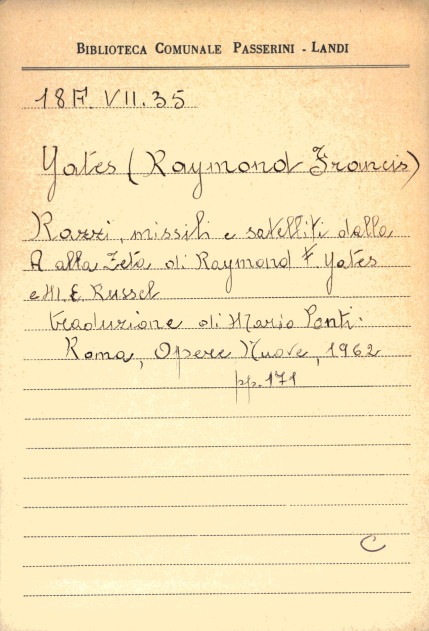 BIBLIOTECA COMUNALE PASSERINI - LANDI
18F. VII. 35
Yates (Raymond Francis)
Razzi, missili e satelliti dalla
A alla Zeta di Raymond F. Yates
e M. E. Russel
traduzione di Mario Ponti.
Roma, Opere Nuove, 1962
pp. 171
C